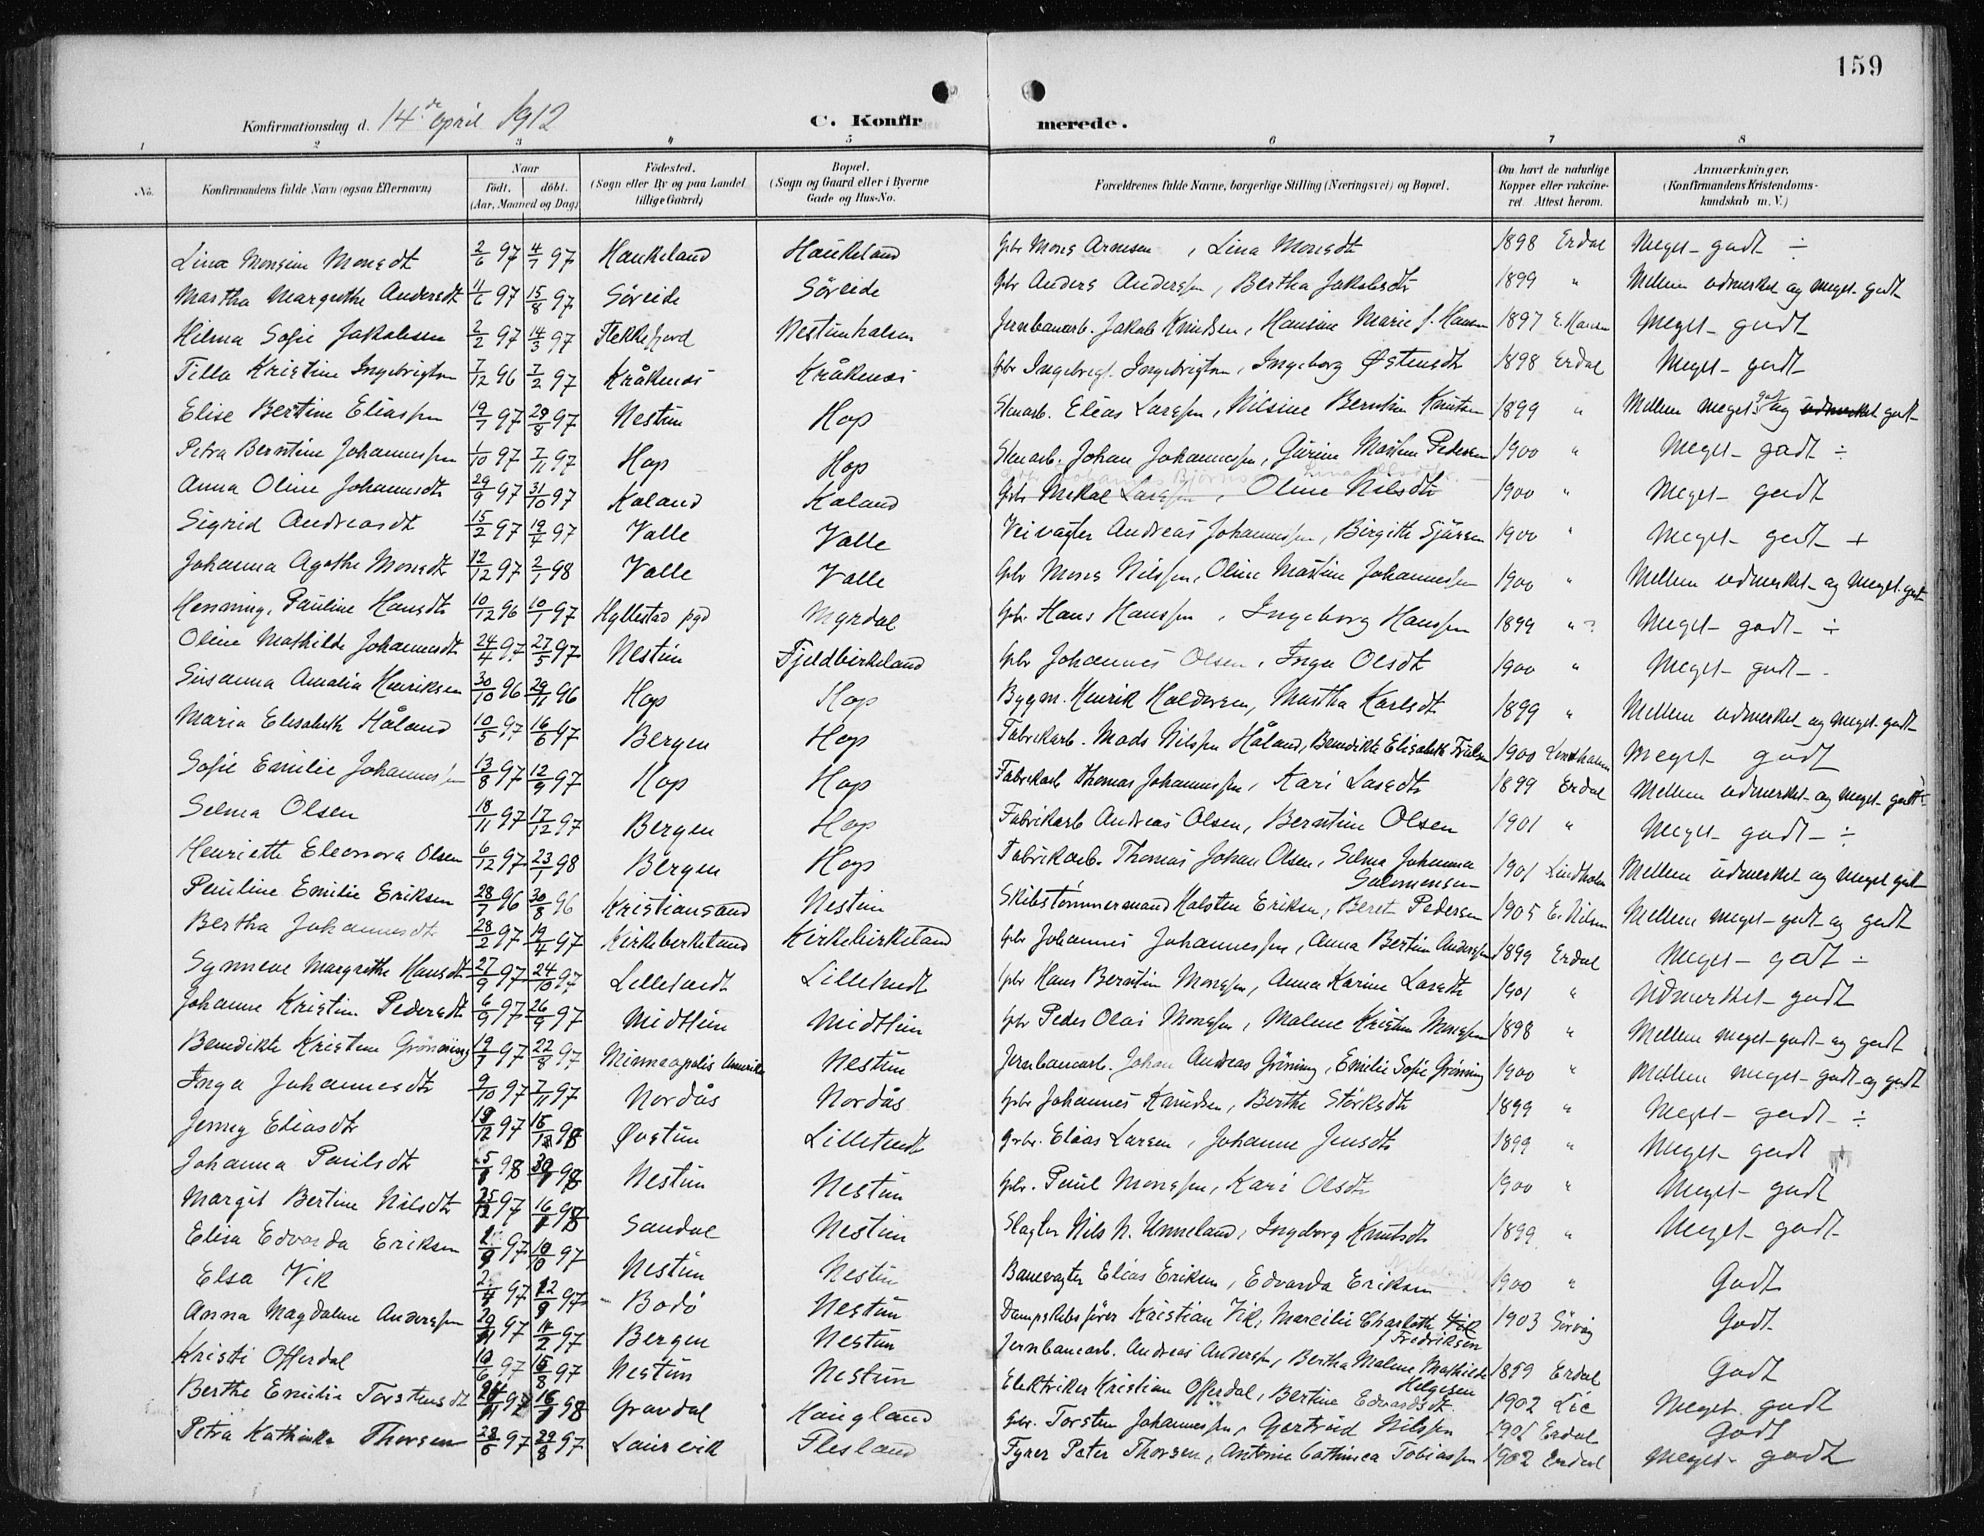 159
Konfirmationsdag d. 14de april 1912 C. Konfirmerede.
1 2 3 4 5 6 7 8
No. Konfirmandens fulde Navn (ogsaa Efternavn) Naar født. døbt. (Aar, Maaned og Dag) Fødested. (Sogn eller By og paa Landet tillige Gaard) Bopæl. (Sogn og Gaard eller i Byerne Gade og Hus-No. Forældrenes fulde Navne, borgerlige Stilling (Næringsvei) og Bopæl. Om havt de naturlige Kopper eller vakcineret. Attest herom. Anmærkninger. (Konfirmandens Kristendomskundskab m. V.)
Lina Monsine Monsdtr 2/6 97 4/7 97 Haukeland Haukeland Gbr Mons Arnesen, Lina Monsdtr 1898 Erdal Meget godt ÷
Martha Margrethe Andersdtr 11/6 97 15/8 97 Søreide Søreide Gbr Anders Anderssen, Bertha Jakobsdtr 1899 " Mellem udmerket og meget godt
Hilma Sofie Jakobsen 2/2 97 14/3 97 Flekkefjord Nestunhalsen Jernbanearb. Jakob Knudsen, Hansine Marie f. Hansen 1897 E. Hansen Meget godt
Tilla Kristine Ingebrigtsen 7/12 96 7/2 97 Kråkenes Kråkenes Gbr Ingebrigt Ingebrigtsen, Ingeborg Østensdtr 1898 Erdal Meget godt
Elise Bertine Eliassen 19/7 97 29/8 97 Nestun Hop Stenarb. Elias Larssen, Nilsine Berntine Knutsen 1899 " Mellem meget godt og udmerket godt
Petra Berntine Johannessen 1/10 97 7/11 97 Hop Hop Stenarb. Johan Johannessen, Gurine Martine Pedersen 1900 " Meget godt ÷
Anna Oline Johannesdtr 29/9 97 31/10 97 Kaland Kaland Gbr Mikal Larssen, Oline Nilsdtr 1900 " Meget godt
Sigrid Andreasdtr 15/2 97 19/4 97 Valle Valle Veivagter Andreas Johannessen, Birgitte Sjursen 1900 " Meget godt +
Johanna Agathe Monsdtr 12/12 97 2/1 98 Valle Valle Gbr Mons Nilssen, Oline Martine Johannessen 1900 " Mellem udmerket og meget godt
Henning, Pauline Hansdtr 10/12 96 10/1 97 Hyllestad pgd Myrdal Gbr Hans Hanssen, Ingeborg Hanssen 1899 " ? Meget godt ÷
Oline Mathilde Johannesdtr 24/4 97 27/5 97 Nestun Fjeldbirkeland Gbr Johannes Olsen, Inga Olsdtr 1900 " Meget godt
Susanna Amalia Henriksen 30/10 96 29/11 96 Hop Hop Bygm. Henrik Haldorsen, Martha Karlsdtr 1899 " Mellem udmerket og meget godt
Maria Elisabeth Håland 10/5 97 16/6 97 Bergen Hop Fabrikarb. Mads Nilssen Håland, Benedikte Elisabeth 1900 Lindholm Meget godt
Sofie Emilie Johannessen 13/8 97 12/9 97 Hop Hop Fabrikarb Thomas Johannessen, Kari Larsdtr 1899 Erdal Mellem udmerket og meget godt ÷
Selma Olsen 18/11 97 17/12 97 Bergen Hop Fabrikarb Andreas Olsen, Berntine Olsen 1901 " Meget godt ÷
Henriette Eleonora Olsen 6/12 97 23/1 98 Bergen Hop Fabrikarb. Thomas Johan Olsen, Selma Johanna Salomonsen 1901 Lindholm Mellem udmerket og meget godt
Pauline Emilie Eriksen 28/7 96 30/8 96 Kristiansand Nestun Skibstømmermand Halsten Eriksen, Beret Pedersen 1905 E. Nilsen Mellem meget godt og godt
Bertha Johannesdtr 28/2 97 19/4 97 Kirkebirkeland Kirkebirkeland Gbr Johannes Johannessen, Anna Bertine Anderssen 1899 Erdal Meget godt ÷
Synneve Margrethe Hansdtr 27/9 97 24/10 97 Lilletvedt Lilletvedt Gbr Hans Berntin Monssen, Anna Karine Larsdtr 1901 " Udmerket godt
Johanne Kristine Pedersdtr 6/9 97 26/9 97 Midttun Midttun Gbr Peder Olai Monssen, Malene Kristine Monssen 1898 " Mellem meget godt og godt
Benedikte Kristine Grønning 19/7 97 22/8 97 Minneapolis Amerika Nestun Jernbanearb. Johan Andreas Grønning, Emilie Sofie Grønning 1900 " Mellem meget godt og godt
Inga Johannesdtr 9/10 97 7/11 97 Nordås Nordås Gbr Johannes Knudsen, Berthe Størksdtr 1899 " Meget godt ÷
Jenny Eliasdtr 12 97 98 Øvstun Lilletvedt Gbr. Elias Larsen, Johanne Jensdtr 1899 " Meget godt
Johanna Paulsdtr 98 98 Nestun Nestun Gbr. Paul Monssen, Kari Olsdtr 1900 " Meget godt
Margit Bertine Nilsdtr 97 16 98 Sandal Nestun Slagter Nils N. Unneland, Ingeborg Knutsdtr 1899 " Meget godt
Elisa Edvarda Eriksen 97 10/10 97 Nestun Nestun Banevagter Elias Eriksen, Edvarda Eriksen 1900 " Godt
Elsa Vik 97 97 Bodö Nestun Dampskibsfører Kristian Vik, Marcelie Charlotte Vik f Fredriksen 1903 Sørvåg Godt
Anna Magdalene Anderssen 97 97 Bergen Nestun Jernbanearb. Andreas Anderssen, Bertha Malene Mathilde Helgesen 1899 Erdal Godt
Kristi Offerdal 97 15/8 97 Nestun Nestun Elektriker Kristian Offerdal, Bertine Edvardsdtr 1902 Lie Meget godt
Berthe Emilie Torstensdtr 97 98 Gravdal Haugland Gbr. Torsten Johannessen, Gertrud Nilssen 1901 Erdal Godt
Petra Kathinka Thorsen 28/6 97 29/8 97 Laurvik Flesland Fyrer Peter Thorsen, Antonie Cathinca Tobiassen 1902 Erdal Meget godt